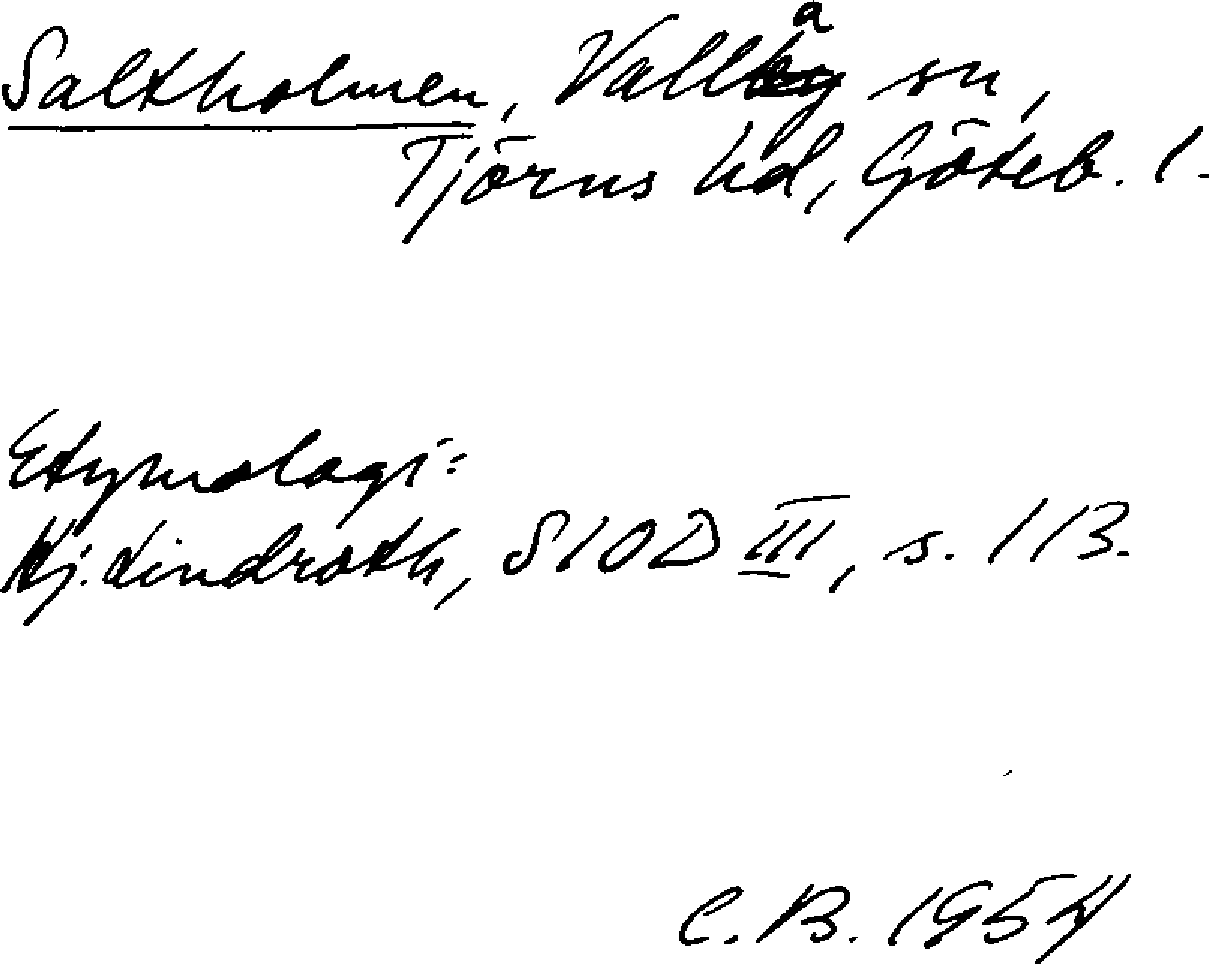 Saltholmen, Valla sn,
Tjörns hd, Göteb. l.
Etymologi:
Hj. Lindroth, SIOD III, s. 113.
C.B. 1954